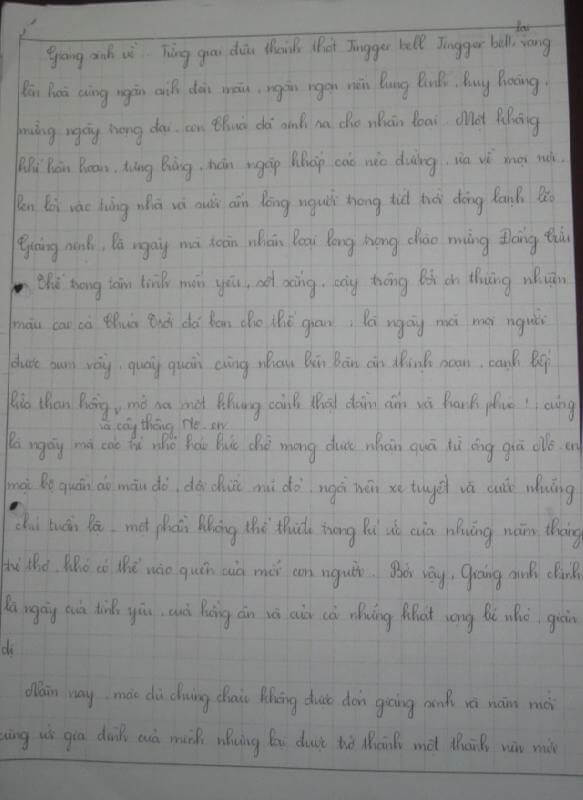 lại
Giáng sinh về... Từng giai điệu thánh thót Jingger bell Jingger bell, vang
lên hoà cùng ngàn ánh đèn màu, ngàn ngọn nến lung linh, huy hoàng,
mừng ngày trọng đại, con Thiên Chúa đã sinh ra cho nhân loại. Một không
khí hân hoan, tưng bừng, tràn ngập khắp các nẻo đường, ùa về mọi nơi,
len lỏi vào từng nhà và sưởi ấm lòng người trong tiết trời đông lạnh lẽo
Giáng sinh, là ngày mà toàn nhân loại long trọng chào mừng Đấng Cứu
Thế trong tâm tình mến yêu, sốt sắng, cậy trông bởi ơn thiêng nhiệm
mầu cao cả Chúa Trời đã ban cho thế gian, là ngày mà mọi người
được sum vầy, quây quần cùng nhau bên bàn ăn thịnh soạn, cạnh bếp
lửa than hồng, mở ra một khung cảnh thật đầm ấm và hạnh phúc !, cũng
và cây thông No-en
là ngày mà các trẻ nhỏ háo hức chờ mong được nhận quà từ ông già Nô-en
mặc bộ quần áo màu đỏ, đội chiếc mũ đỏ, ngồi trên xe tuyết và cưỡi những
chú tuần lộc - một phần không thể thiếu trong kí ức của những năm tháng
trẻ thơ, khó có thể nào quên của mỗi con người. Bởi vậy, Giáng sinh chính
là ngày của tình yêu, của hồng ân và của cả những khát vọng bé nhỏ, giản
dị
Năm nay, mặc dù chúng cháu không được đón giáng sinh và năm mới
cùng với gia đình của mình nhưng lại được trở thành một thành viên mới